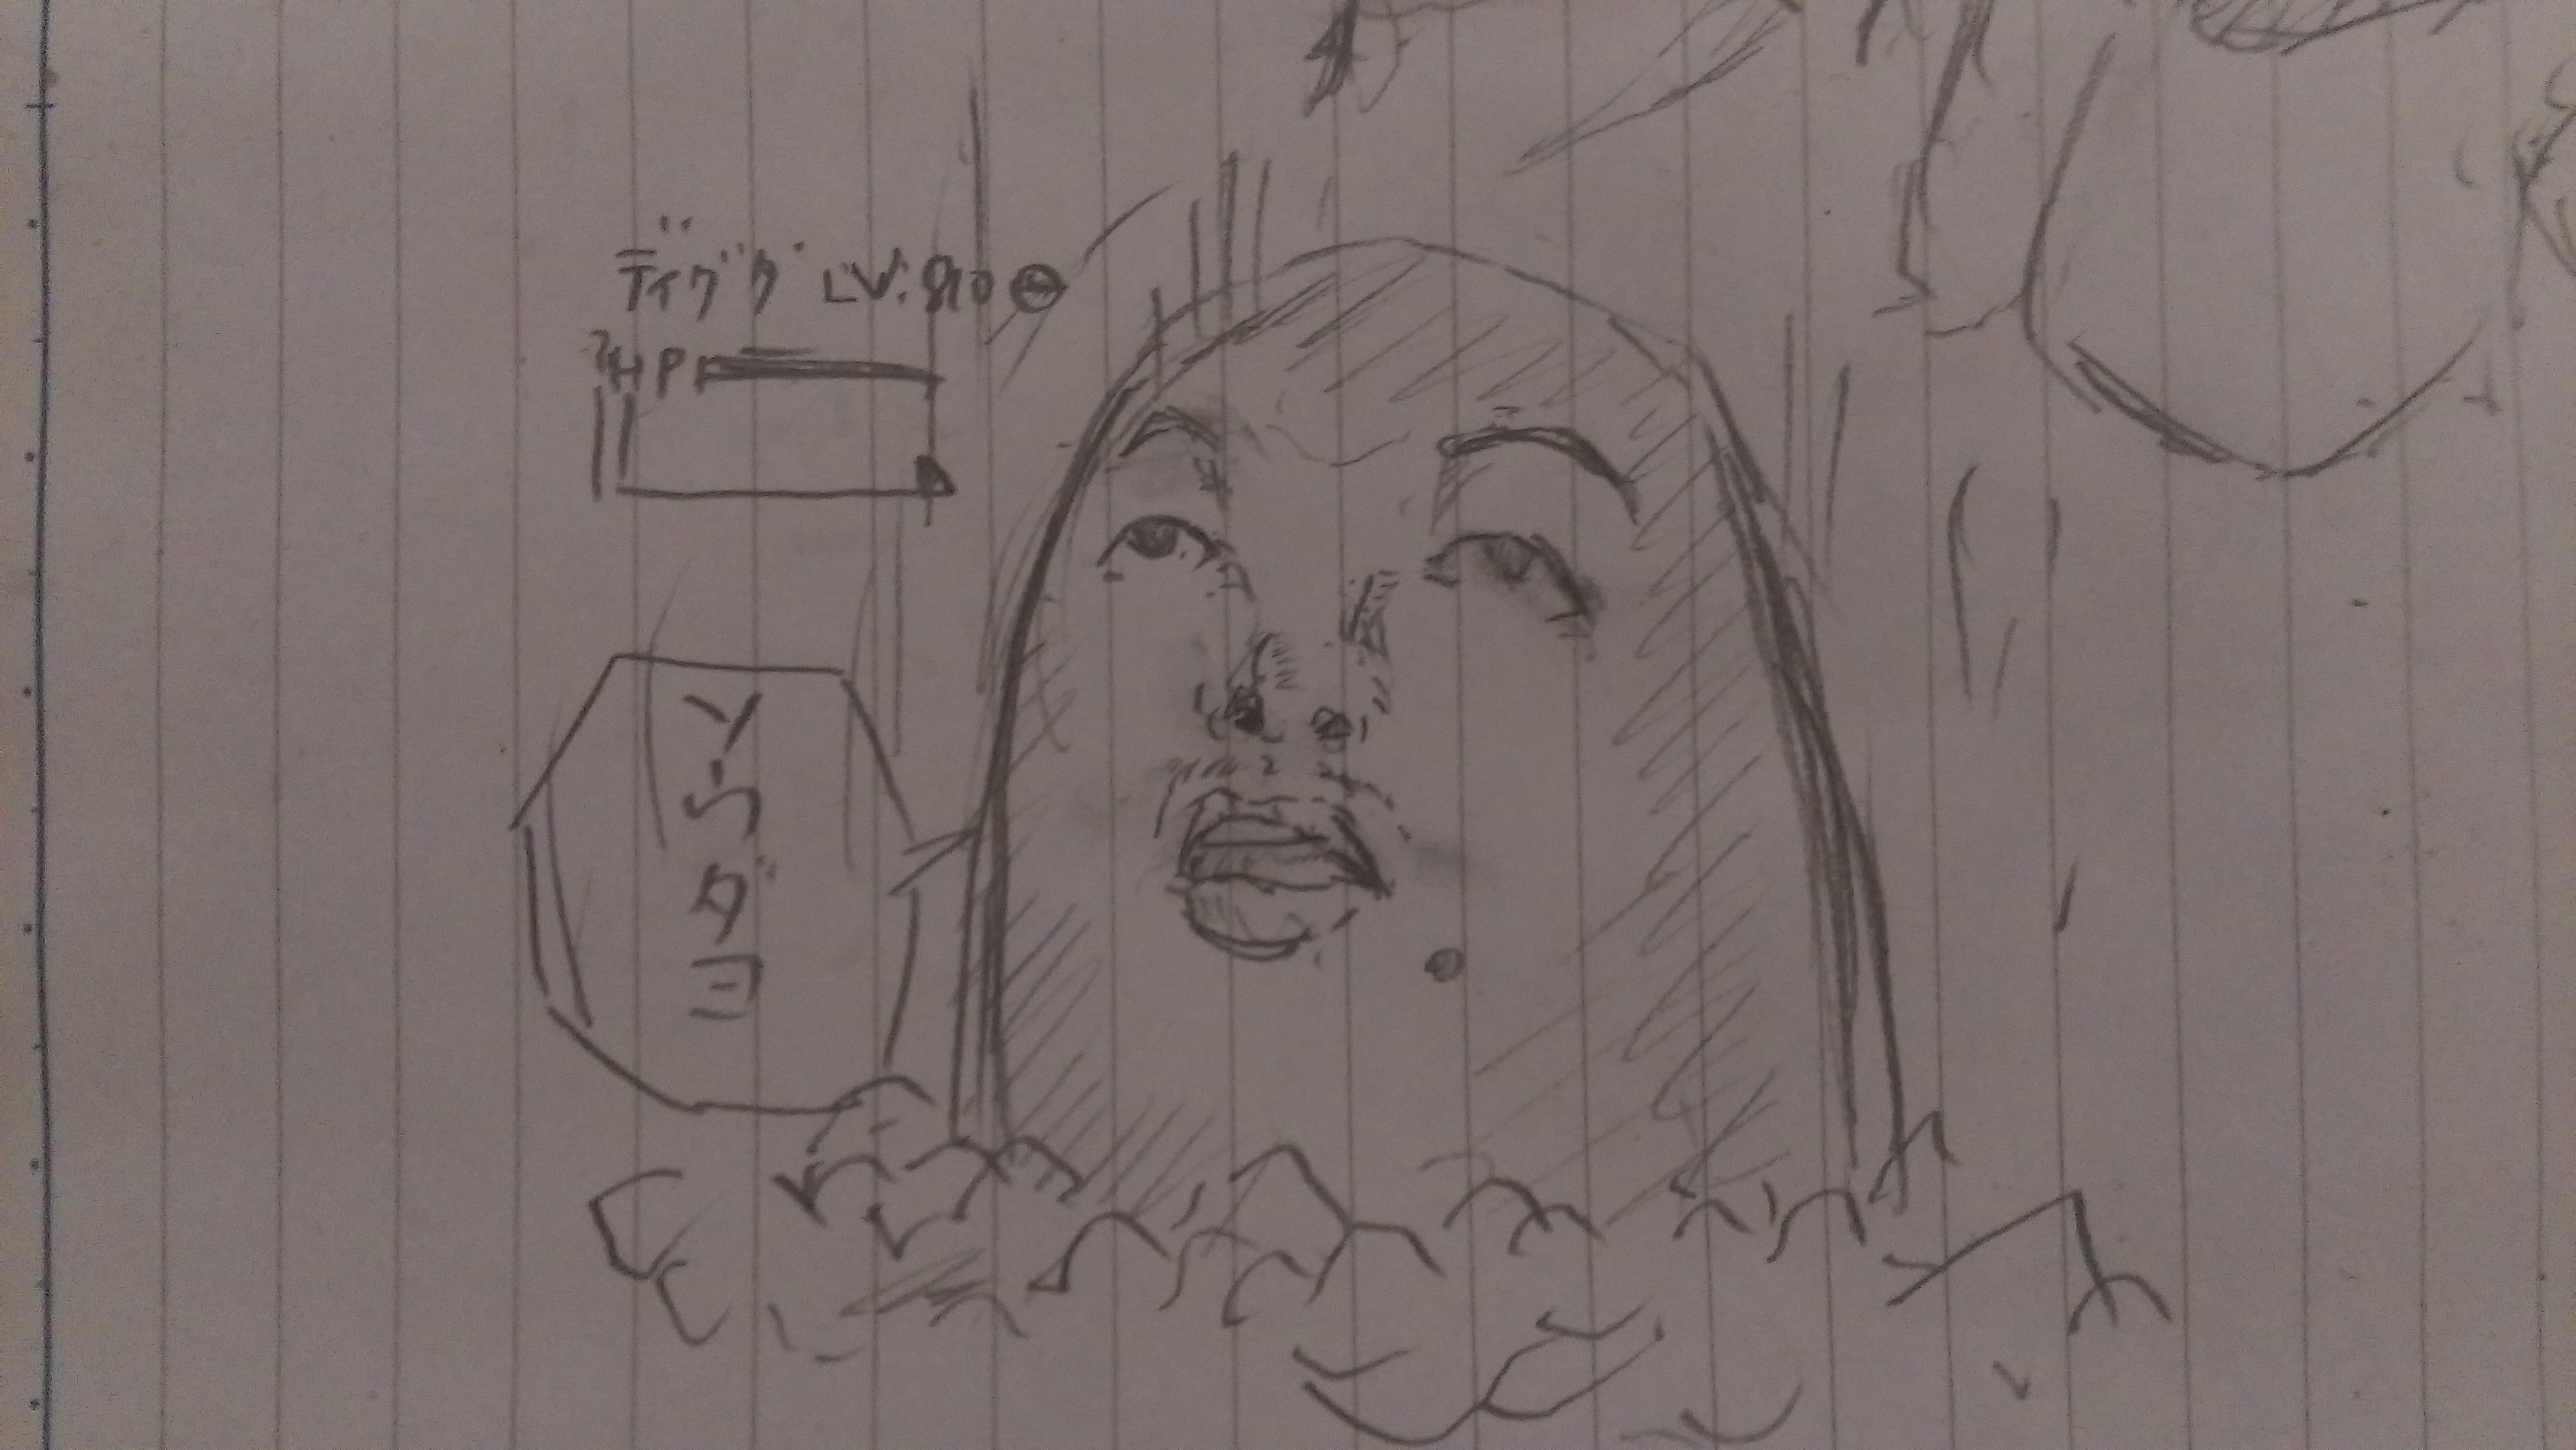 ディグダ LV.810
HP
ソウダヨ